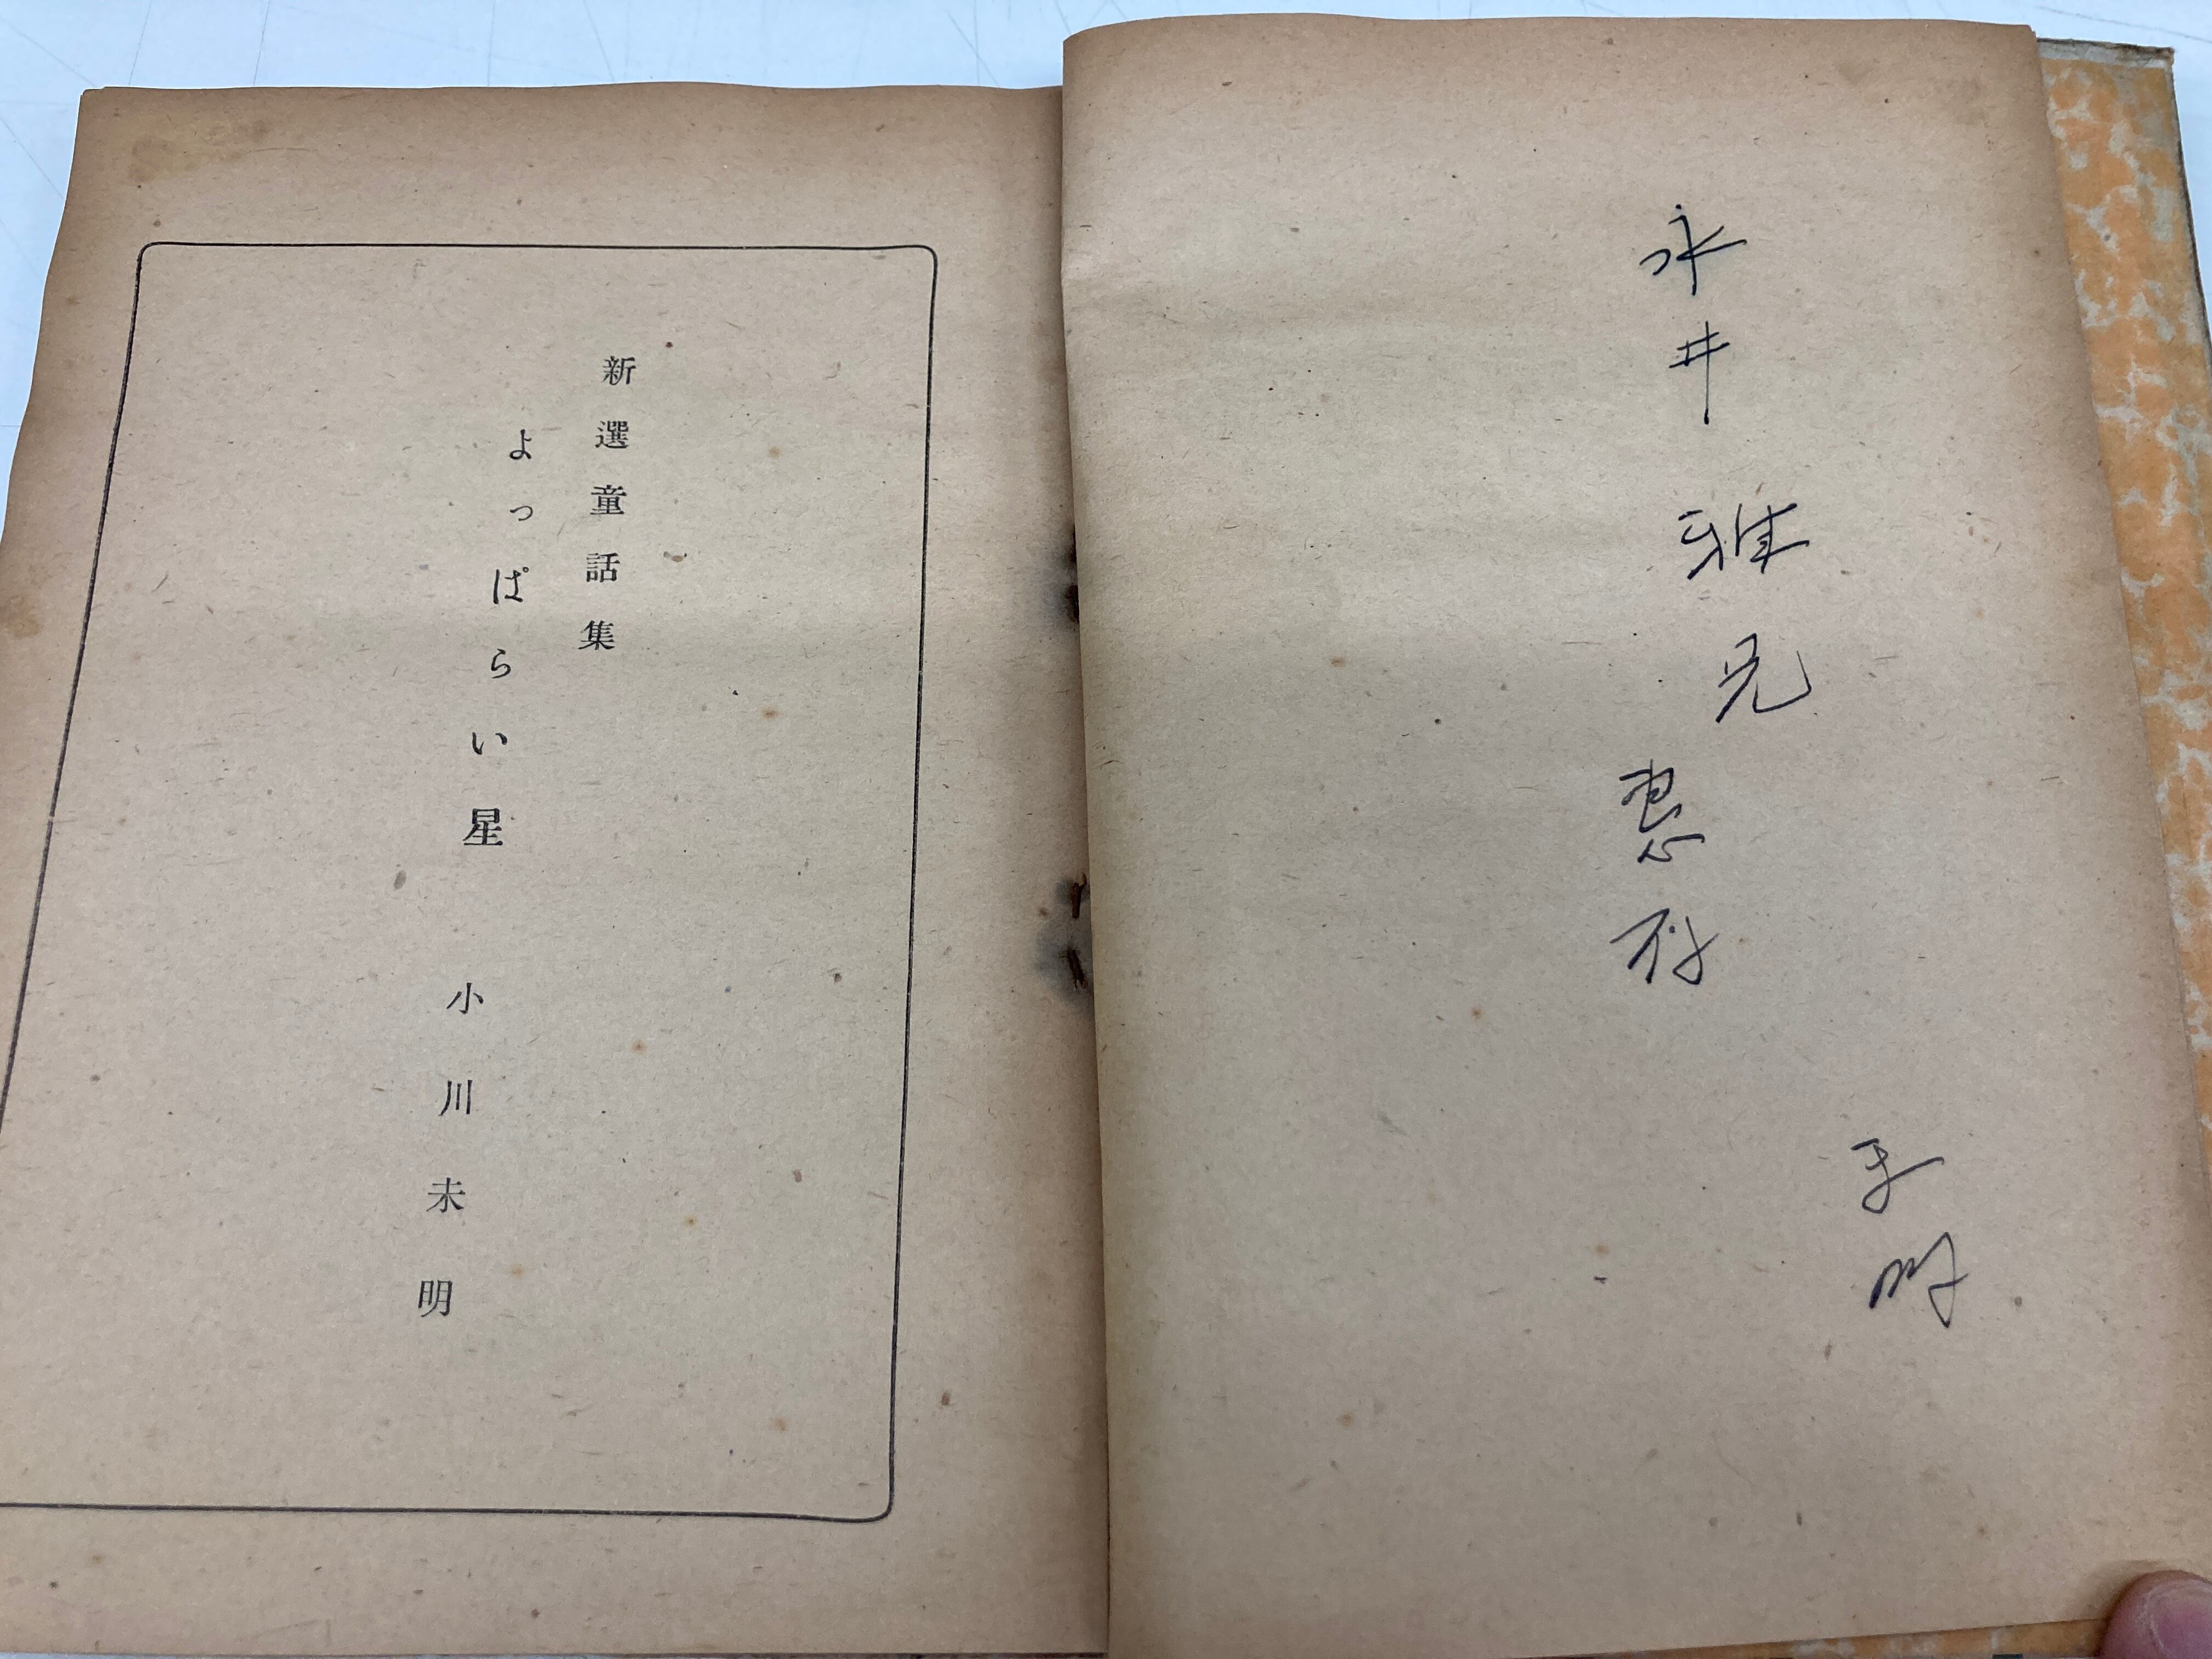 永井雅兄
恵存
未明
新選童話集
よっぱらい星
小川未明